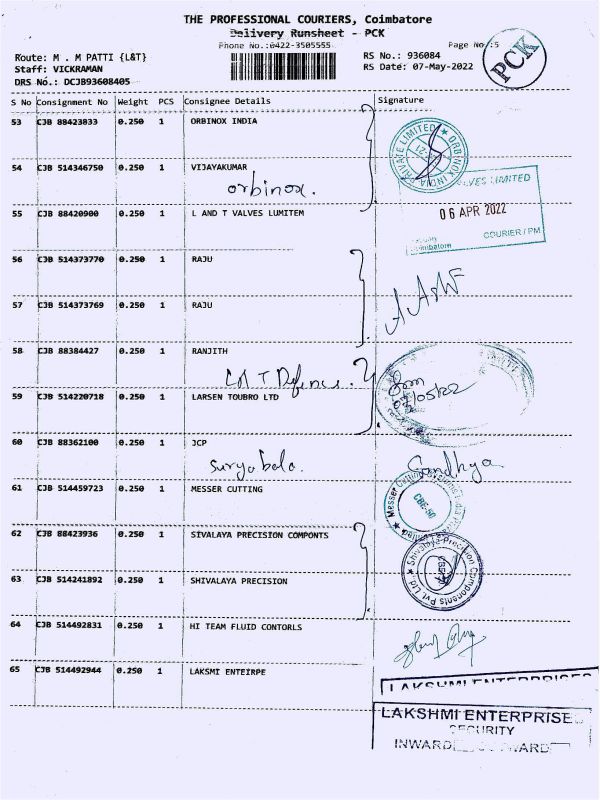 THE PROFESSIONAL COURIERS, Coimbatore
Delivery Runsheet - PCK
Phone No.:0422-3505555
Page No.:5
PCK
Route: M . M PATTI {L&T}
RS No.: 936084
Staff: VICKRAMAN
RS Date: 07-May-2022
DRS No.: DCJB93608405
S No Consignment No Weight PCS Consignee Details Signature
53 CJB 88423833 0.250 1 ORBINOX INDIA
PRIVATE LIMITED ★ ORBINOX INDIA
54 CJB 514346750 0.250 1 VIJAYAKUMAR
orbinox.
VALVES LIMITED
06 APR 2022
COURIER / PM
55 CJB 88420900 0.250 1 L AND T VALVES LUMITEM
56 CJB 514373770 0.250 1 RAJU
57 CJB 514373769 0.250 1 RAJU
58 CJB 88384427 0.250 1 RANJITH
L& T Defence.
07/05/22
59 CJB 514220718 0.250 1 LARSEN TOUBRO LTD
60 CJB 88362100 0.250 1 JCP
Suryabala.
Sandhya
61 CJB 514459723 0.250 1 MESSER CUTTING
Messer Cutting
CBE-50
62 CJB 88423936 0.250 1 SIVALAYA PRECISION COMPONTS
Shivalaya Precision Components Pvt. Ltd.
63 CJB 514241892 0.250 1 SHIVALAYA PRECISION
64 CJB 514492831 0.250 1 HI TEAM FLUID CONTORLS
65 CJB 514492944 0.250 1 LAKSMI ENTEIRPE
LAKSHMI ENTERPRISES
LAKSHMI ENTERPRISE
SECURITY
INWARD
WARD